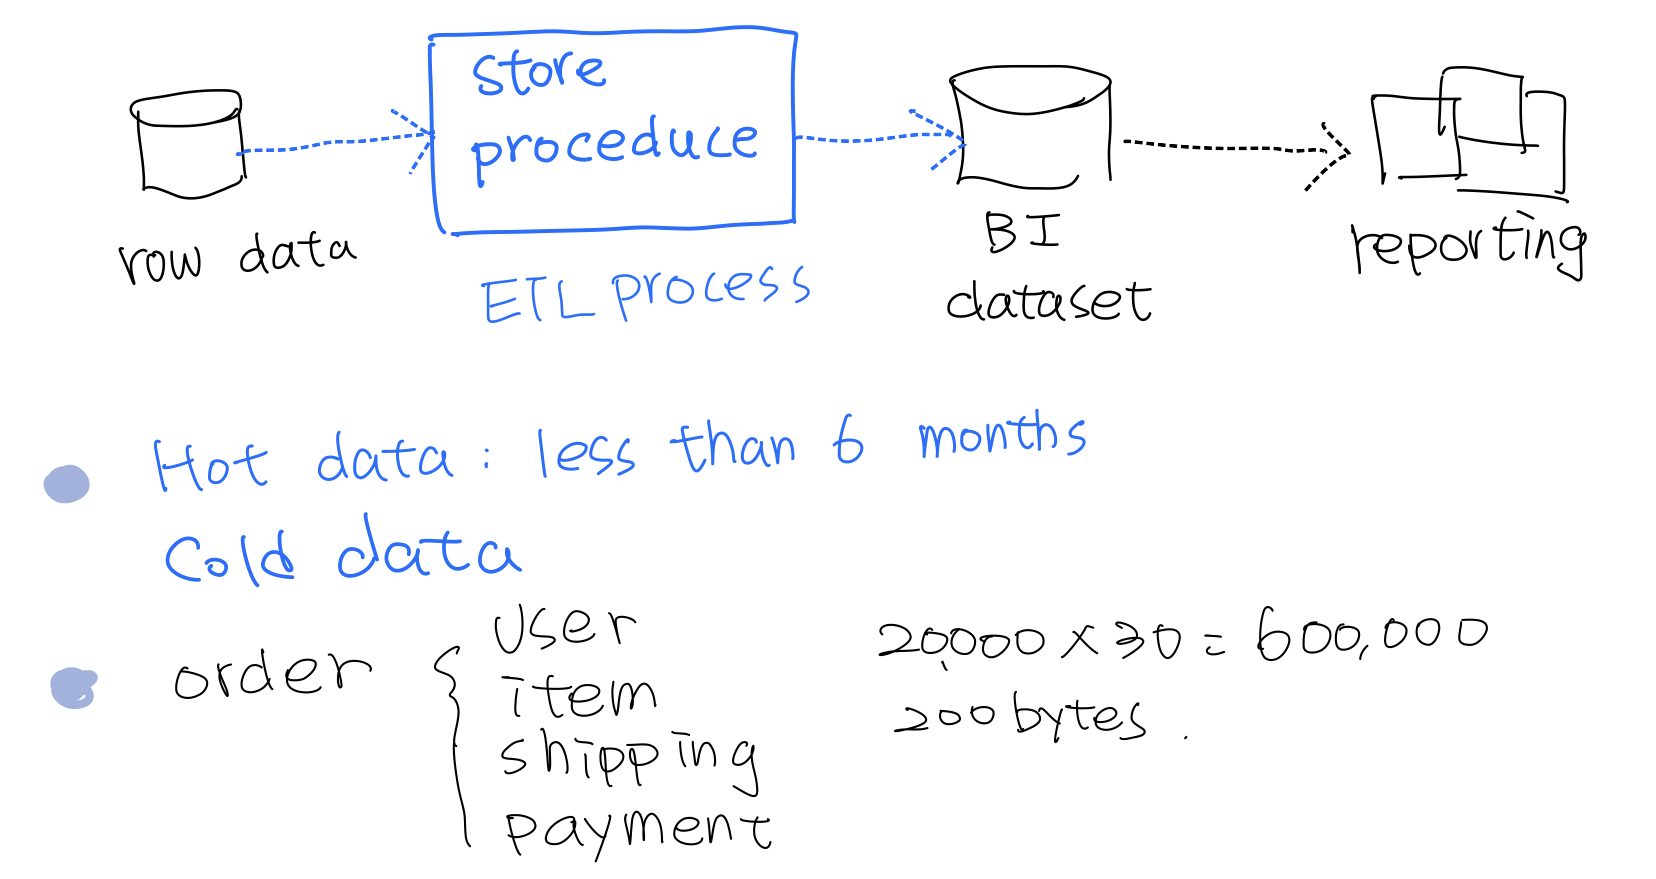 store
proceduce
row data
ETL process
BI
dataset
reporting
Hot data : less than 6 months
Cold data
order { user
item
shipping
payment
20,000 x 30 = 600,000
200 bytes.